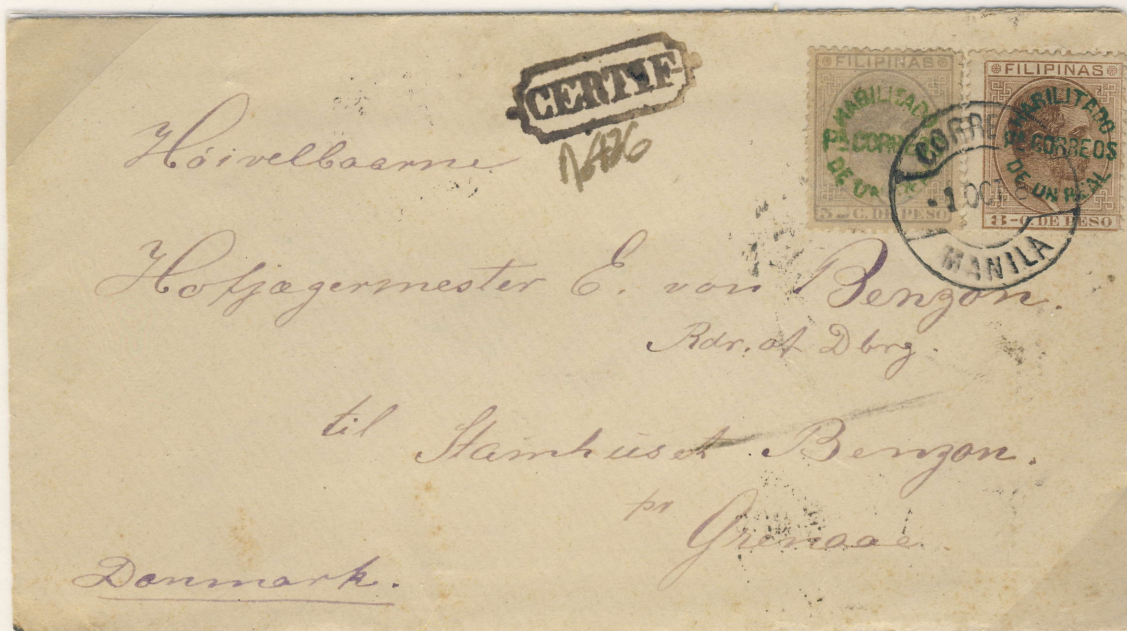 CERTIF
FILIPINAS
HABILITADO
Pa. CORREOS
DE UN
C. DE PESO
FILIPINAS
HABILITADO
CORREOS
DE UN REAL
8 - C. DE PESO
1 OCT
MANILA
Höivelbaarne
Hofjægermester E. von Benzon.
Rdr. af Dbrg.
til Stamhuset Benzon.
pr Grenaae.
Danmark.